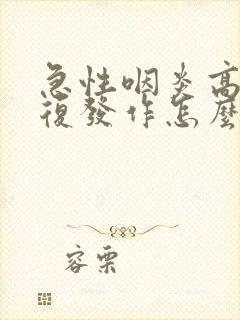 急性咽炎高
復發作怎麼
容栗